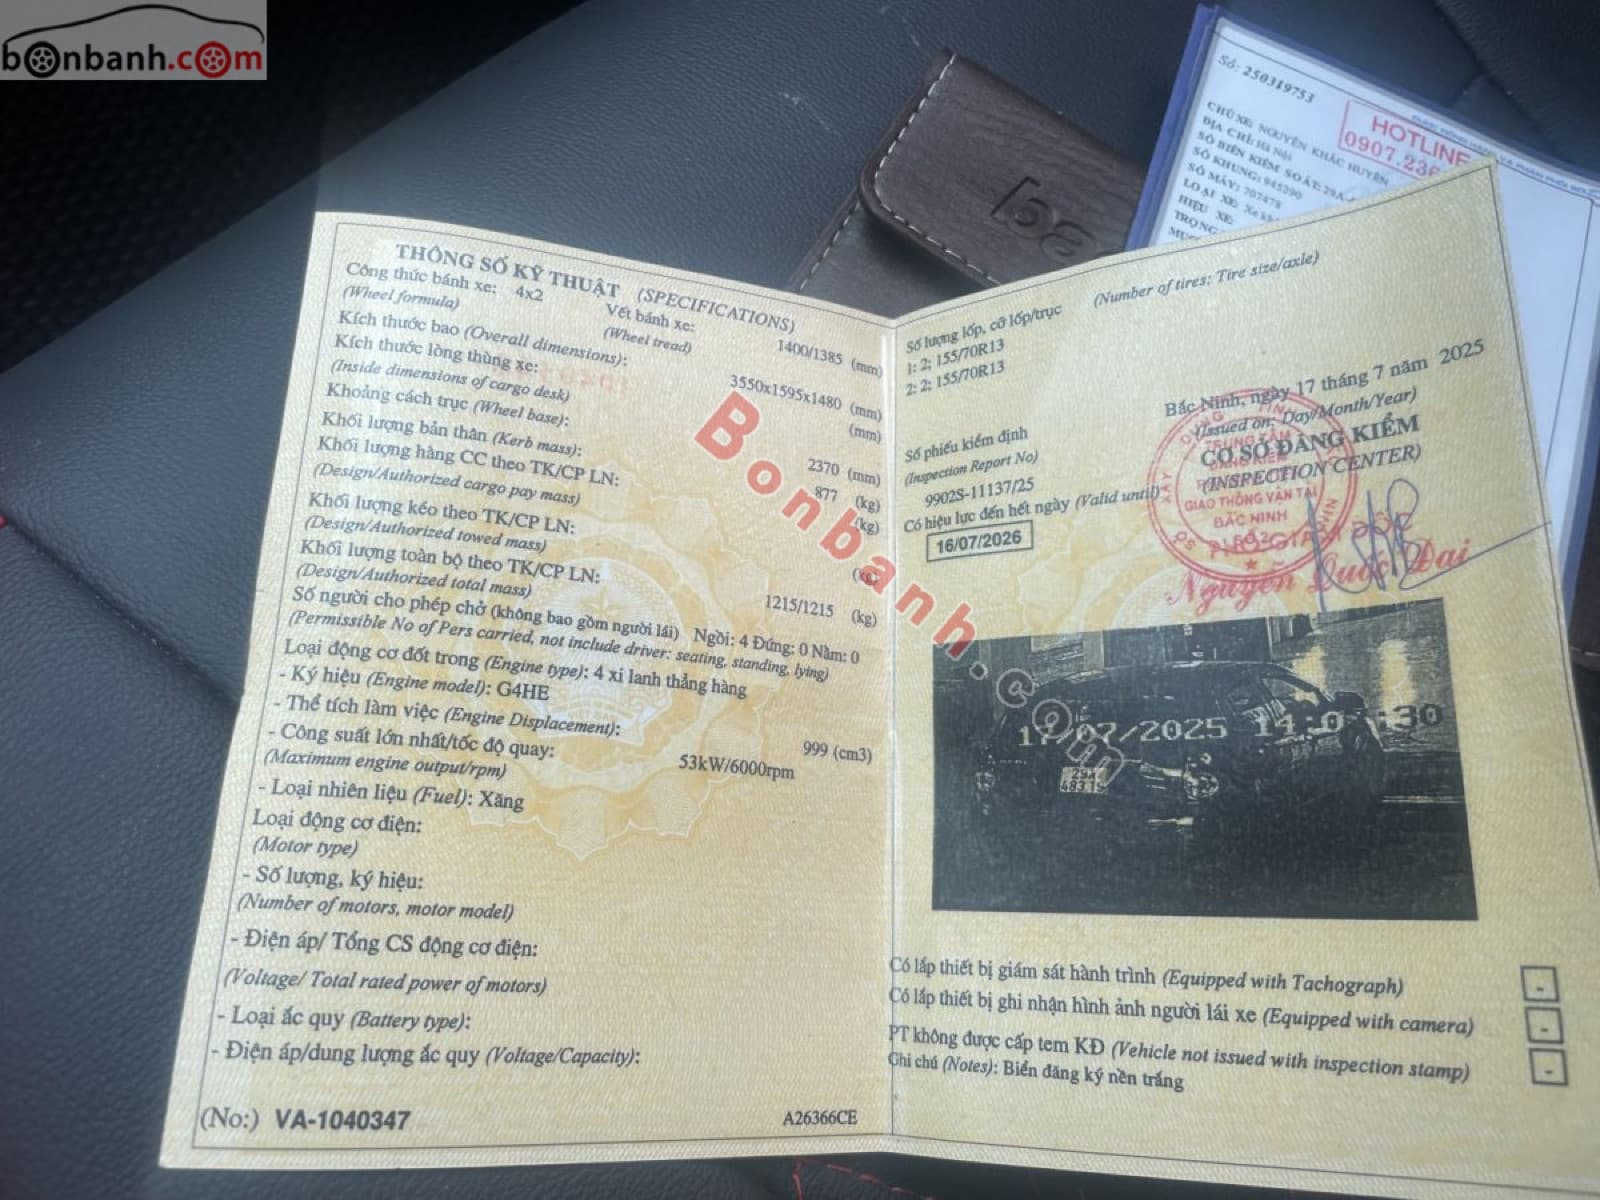 bonbanh.com
Số: 250319753
HOTLINE
0907.236
CHỦ XE: NGUYỄN KHẮC HUYỀN
ĐỊA CHỈ: Hà Nội
SỐ BIỂN KIỂM SOÁT: 29A-
SỐ KHUNG: 945290
SỐ MÁY: 707478
LOẠI XE: Xe
HIỆU XE:
TRỌNG
THÔNG SỐ KỸ THUẬT (SPECIFICATIONS)
Công thức bánh xe: 4x2 Vết bánh xe: 1400/1385 (mm)
(Wheel formula) (Wheel tread)
Kích thước bao (Overall dimensions): 3550x1595x1480 (mm)
Kích thước lòng thùng xe: (mm)
(Inside dimensions of cargo desk)
Khoảng cách trục (Wheel base): 2370 (mm)
Khối lượng bản thân (Kerb mass): 877 (kg)
Khối lượng hàng CC theo TK/CP LN: (kg)
(Design/Authorized cargo pay mass)
Khối lượng kéo theo TK/CP LN: (kg)
(Design/Authorized towed mass)
Khối lượng toàn bộ theo TK/CP LN: 1215/1215 (kg)
(Design/Authorized total mass)
Số người cho phép chở (không bao gồm người lái) Ngồi: 4 Đứng: 0 Nằm: 0
(Permissible No of Pers carried, not include driver: seating, standing, lying)
Loại động cơ đốt trong (Engine type): 4 xi lanh thẳng hàng
- Ký hiệu (Engine model): G4HE
- Thể tích làm việc (Engine Displacement): 999 (cm3)
- Công suất lớn nhất/tốc độ quay: 53kW/6000rpm
(Maximum engine output/rpm)
- Loại nhiên liệu (Fuel): Xăng
Loại động cơ điện:
(Motor type)
- Số lượng, ký hiệu:
(Number of motors, motor model)
- Điện áp/ Tổng CS động cơ điện:
(Voltage/ Total rated power of motors)
- Loại ắc quy (Battery type):
- Điện áp/dung lượng ắc quy (Voltage/Capacity):
(No:) VA-1040347 A26366CE
Số lượng lốp, cỡ lốp/trục (Number of tires; Tire size/axle)
1: 2; 155/70R13
2: 2; 155/70R13
Bắc Ninh, ngày 17 tháng 7 năm 2025
(Issued on: Day/Month/Year)
CƠ SỞ ĐĂNG KIỂM
(INSPECTION CENTER)
Số phiếu kiểm định
(Inspection Report No)
9902S-11137/25
Có hiệu lực đến hết ngày (Valid until)
16/07/2026
TRUNG TÂM
ĐĂNG KIỂM
GIAO THÔNG VẬN TẢI
BẮC NINH
PHÓ GIÁM ĐỐC
Nguyễn Quốc Đại
17/07/2025 14:0 :30
29A
483.19
Có lắp thiết bị giám sát hành trình (Equipped with Tachograph) -
Có lắp thiết bị ghi nhận hình ảnh người lái xe (Equipped with camera) -
PT không được cấp tem KĐ (Vehicle not issued with inspection stamp) -
Ghi chú (Notes): Biển đăng ký nền trắng
Bonbanh.com